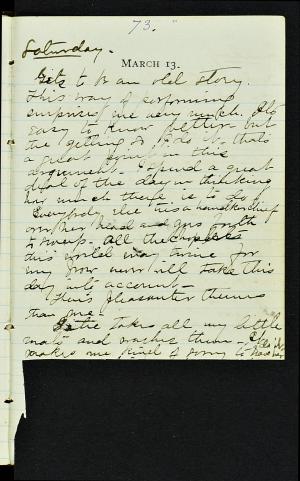 73. "
Saturday.
MARCH 13.
Gets to be an old story.
This way of performing
surprises me very much. It's
easy to know better but
the getting to do it, thats
a great point in this
argument. I spend a great
deal of the day in thinking
how much there is to do.
Everybody else ties a handkerchief
over her head and goes forth
to sweep. All the
this world was time for
my now never will take this
day into account.
There's pleasanter themes
than me.
takes all my little
mats and washes them.
makes me kind of sorry to have her